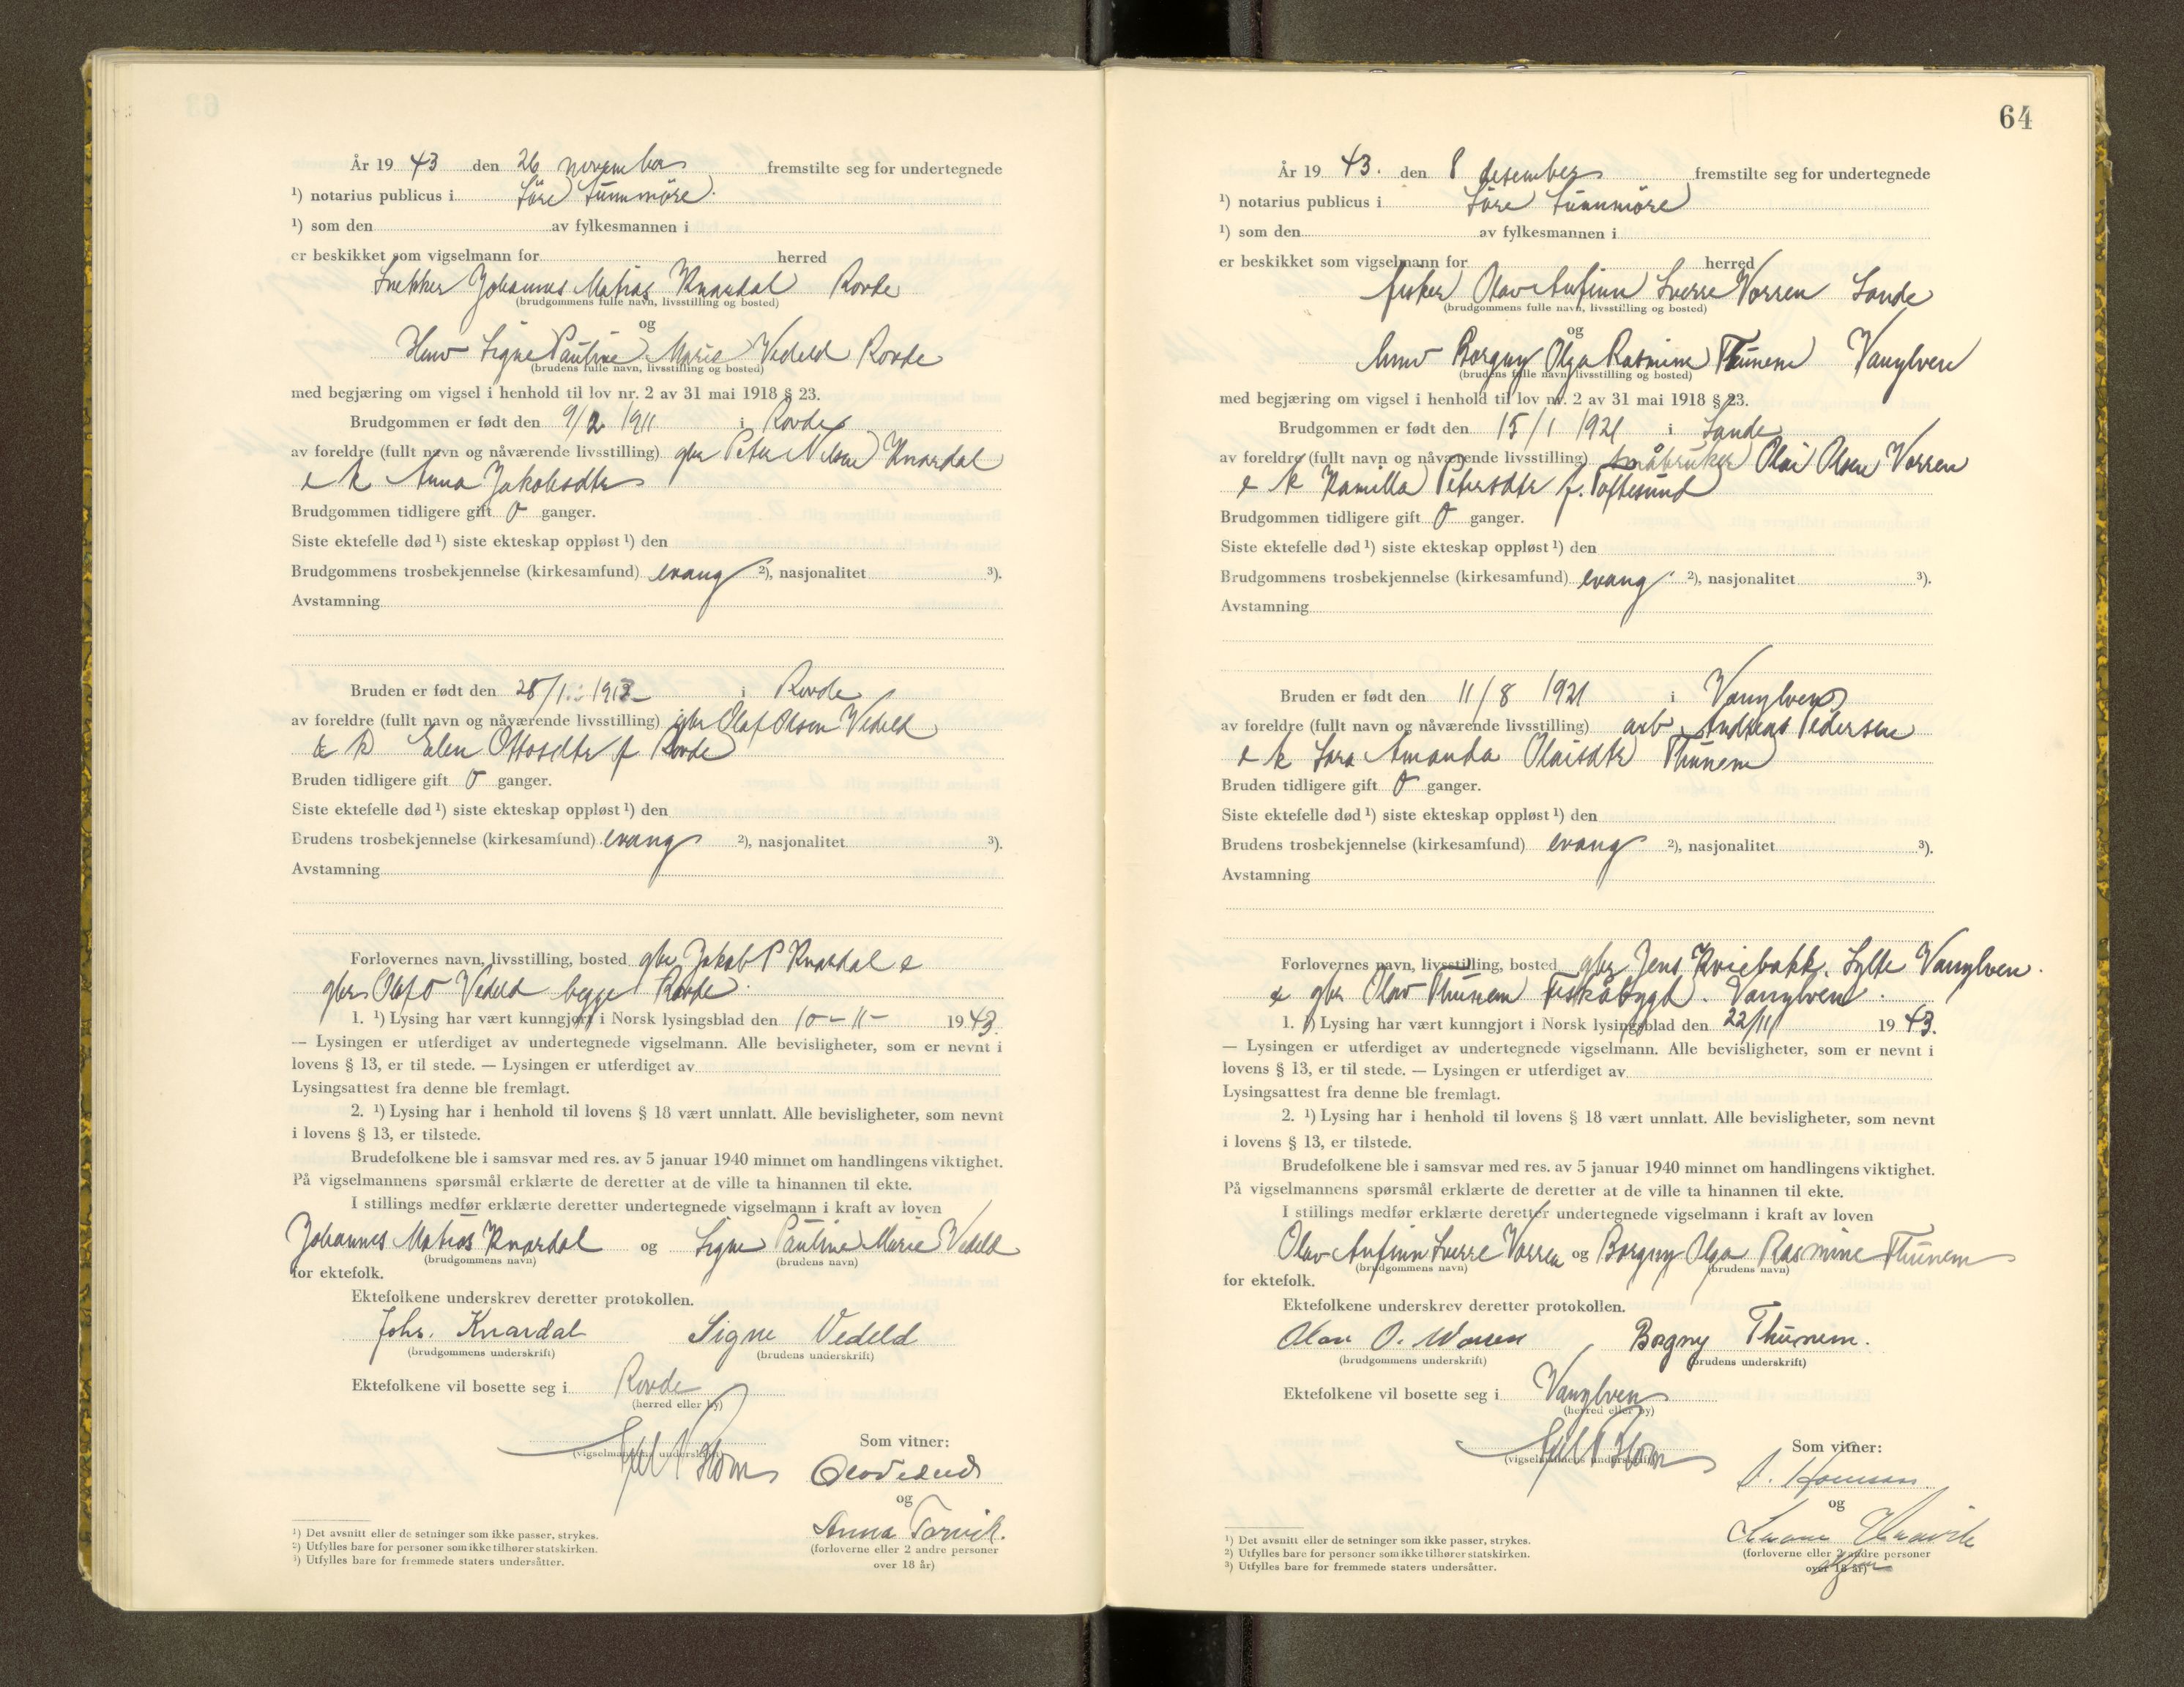 År 19 43 den 26 november fremstilte seg for undertegnede
¹) notarius publicus i Søre Sunnmøre.
¹) som den av fylkesmannen i
er beskikket som vigselmann for herred
Snekker Johannes Matias Knardal Rovde
(brudgommens fulle navn, livsstilling og bosted)
og
Husv Signe Pauline Marie Vedeld Rovde
(brudens fulle navn, livsstilling og bosted)
med begjæring om vigsel i henhold til lov nr. 2 av 31 mai 1918 § 23.
Brudgommen er født den 9/2 1911 i Rovde
av foreldre (fullt navn og nåværende livsstilling) gbr Peter Nilsen Knardal
e k Anna Jakobsdtr
Brudgommen tidligere gift 0 ganger.
Siste ektefelle død ¹) siste ekteskap oppløst ¹) den
Brudgommens trosbekjennelse (kirkesamfund) evang ²), nasjonalitet ³).
Avstamning
Bruden er født den 28/1 1912 i Rovde
av foreldre (fullt navn og nåværende livsstilling) gbr Olaf Olsen Vedeld
& k Elen Ottosdtr f Rovde
Bruden tidligere gift 0 ganger.
Siste ektefelle død ¹) siste ekteskap oppløst ¹) den
Brudens trosbekjennelse (kirkesamfund) evang ²), nasjonalitet ³).
Avstamning
Forlovernes navn, livsstilling, bosted gbr Jakob P Knardal e
gbr Olaf O Vedeld begge Rovde.
1. ¹) Lysing har vært kunngjort i Norsk lysingsblad den 10-11- 1943.
— Lysingen er utferdiget av undertegnede vigselmann. Alle bevisligheter, som er nevnt i
lovens § 13, er til stede. — Lysingen er utferdiget av
Lysingsattest fra denne ble fremlagt.
2. ¹) Lysing har i henhold til lovens § 18 vært unnlatt. Alle bevisligheter, som nevnt
i lovens § 13, er tilstede.
Brudefolkene ble i samsvar med res. av 5 januar 1940 minnet om handlingens viktighet.
På vigselmannens spørsmål erklærte de deretter at de ville ta hinannen til ekte.
I stillings medfør erklærte deretter undertegnede vigselmann i kraft av loven
Johannes Matias Knardal og Signe Pauline Marie Vedeld
(brudgommens navn) (brudens navn)
for ektefolk.
Ektefolkene underskrev deretter protokollen.
Johs. Knardal Signe Vedeld
(brudgommens underskrift) (brudens underskrift)
Ektefolkene vil bosette seg i Rovde
(herred eller by)
Som vitner:
(vigselmannens underskrift)
og
Anna Torvik.
(forloverne eller 2 andre personer
over 18 år)
¹) Det avsnitt eller de setninger som ikke passer, strykes.
²) Utfylles bare for personer som ikke tilhører statskirken.
³) Utfylles bare for fremmede staters undersåtter.
64
År 19 43. den 8 desember fremstilte seg for undertegnede
¹) notarius publicus i Søre Sunnmøre
¹) som den av fylkesmannen i
er beskikket som vigselmann for herred
fisker Olav Anfinn Sverre Vorren Sande
(brudgommens fulle navn, livsstilling og bosted)
og
husv Borgny Olga Rasmine Thunem Vanylven
(brudens fulle navn, livsstilling og bosted)
med begjæring om vigsel i henhold til lov nr. 2 av 31 mai 1918 § 23.
Brudgommen er født den 15/1 1921 i Sande
av foreldre (fullt navn og nåværende livsstilling) småbruker Olai Olsen Vorren
e k Kamilla Petersdtr f. Toftesund
Brudgommen tidligere gift 0 ganger.
Siste ektefelle død ¹) siste ekteskap oppløst ¹) den
Brudgommens trosbekjennelse (kirkesamfund) evang ²), nasjonalitet ³).
Avstamning
Bruden er født den 11/8 1921 i Vanylven
av foreldre (fullt navn og nåværende livsstilling) arb Andreas Pedersen
e k Sara Amanda Olaisdtr Thunem
Bruden tidligere gift 0 ganger.
Siste ektefelle død ¹) siste ekteskap oppløst ¹) den
Brudens trosbekjennelse (kirkesamfund) evang ²), nasjonalitet ³).
Avstamning
Forlovernes navn, livsstilling, bosted gbr Jens Kviebakk. Sylte Vanylven.
e gbr Olav Thunem Fiskåbygd. Vanylven.
1. ¹) Lysing har vært kunngjort i Norsk lysingsblad den 22/11 1943.
— Lysingen er utferdiget av undertegnede vigselmann. Alle bevisligheter, som er nevnt i
lovens § 13, er til stede. — Lysingen er utferdiget av
Lysingsattest fra denne ble fremlagt.
2. ¹) Lysing har i henhold til lovens § 18 vært unnlatt. Alle bevisligheter, som nevnt
i lovens § 13, er tilstede.
Brudefolkene ble i samsvar med res. av 5 januar 1940 minnet om handlingens viktighet.
På vigselmannens spørsmål erklærte de deretter at de ville ta hinannen til ekte.
I stillings medfør erklærte deretter undertegnede vigselmann i kraft av loven
Olav Anfinn Sverre Vorren og Borgny Olga Rasmine Thunem
(brudgommens navn) (brudens navn)
for ektefolk.
Ektefolkene underskrev deretter protokollen.
Olav O. Worren Borgny Thunem.
(brudgommens underskrift) (brudens underskrift)
Ektefolkene vil bosette seg i Vanylven
(herred eller by)
Som vitner:
(vigselmannens underskrift)
og
(forloverne eller 2 andre personer
over 18 år)
¹) Det avsnitt eller de setninger som ikke passer, strykes.
²) Utfylles bare for personer som ikke tilhører statskirken.
³) Utfylles bare for fremmede staters undersåtter.